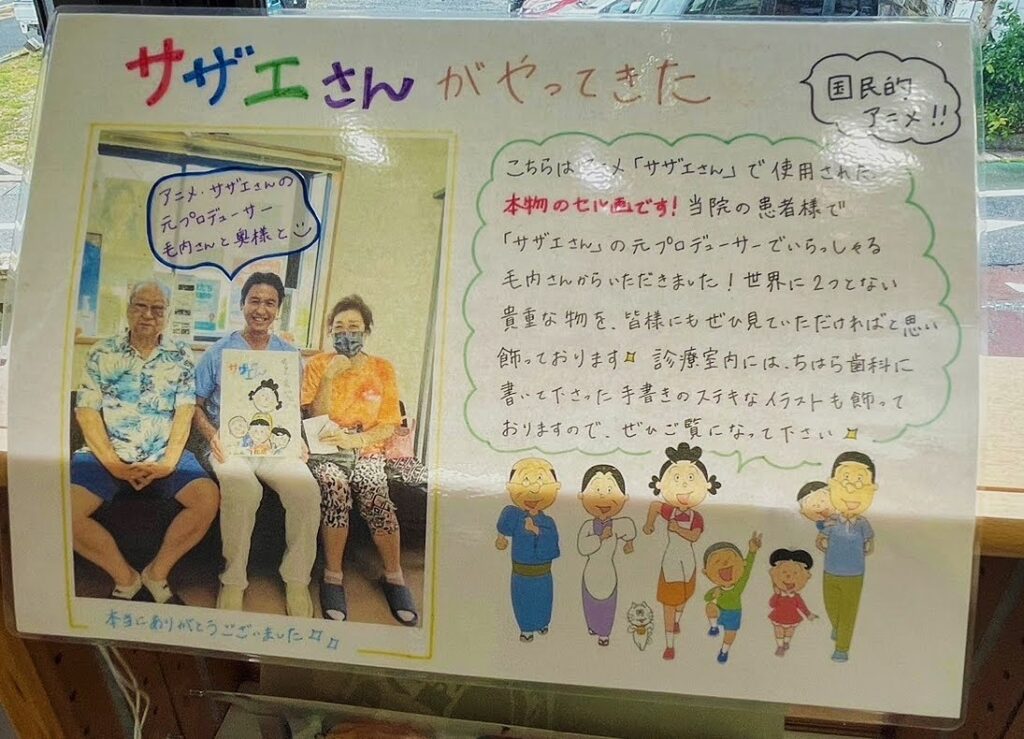 サザエさんがやってきた
国民的
アニメ!!
アニメ・サザエさんの
元プロデューサー
毛内さんと奥様と
こちらはアニメ「サザエさん」で使用された
本物のセル画です!当院の患者様で
「サザエさん」の元プロデューサーでいらっしゃる
毛内さんからいただきました!世界に2つとない
貴重な物を、皆様にもぜひ見ていただければと思い
飾っております 診療室内には、ちはら歯科に
書いて下さった手書きのステキなイラストも飾って
おりますので、ぜひご覧になって下さい
サザエさん
本当にありがとうございました